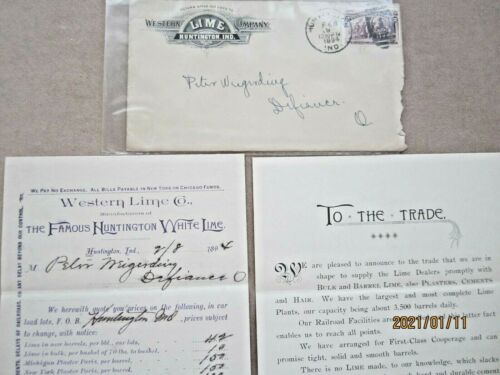 RETURN AFTER 10 DAYS TO
WESTERN LIME COMPANY
HUNTINGTON, IND.
IND.
1894
Peter Weigerding
Defiance
O
WE PAY NO EXCHANGE. ALL BILLS PAYABLE IN NEW YORK OR CHICAGO FUNDS.
Western Lime Co.,
Manufacturers of
THE FAMOUS HUNTINGTON WHITE LIME.
Huntington, Ind., 2/8 1894
M Peter Wigerding
Defiance O
We herewith quote you prices on the following, in car
load lots, F. O. B. Huntington Ind, prices subject
to change, with notice:
Lime in new barrels, per bbl., our lots, 42
Lime in bulk, per bushel of 70 lbs. to basket,
Michigan Plaster Paris, per barrel, 1.00
New York Plaster Paris, per barrel,
TO THE TRADE.
WE are pleased to announce to the trade that we are
in shape to supply the Lime Dealers promptly with
BULK and BARREL LIME, also PLASTERS, CEMENTS
and HAIR. We have the largest and most complete Lime
Plants, our capacity being about 3,500 barrels daily.
Our Railroad Facilities are
enables us to reach all points.
We have arranged for First-Class Cooperage and can
promise tight, solid and smooth barrels.
There is no LIME made, to our knowledge, which slacks
2021/01/11